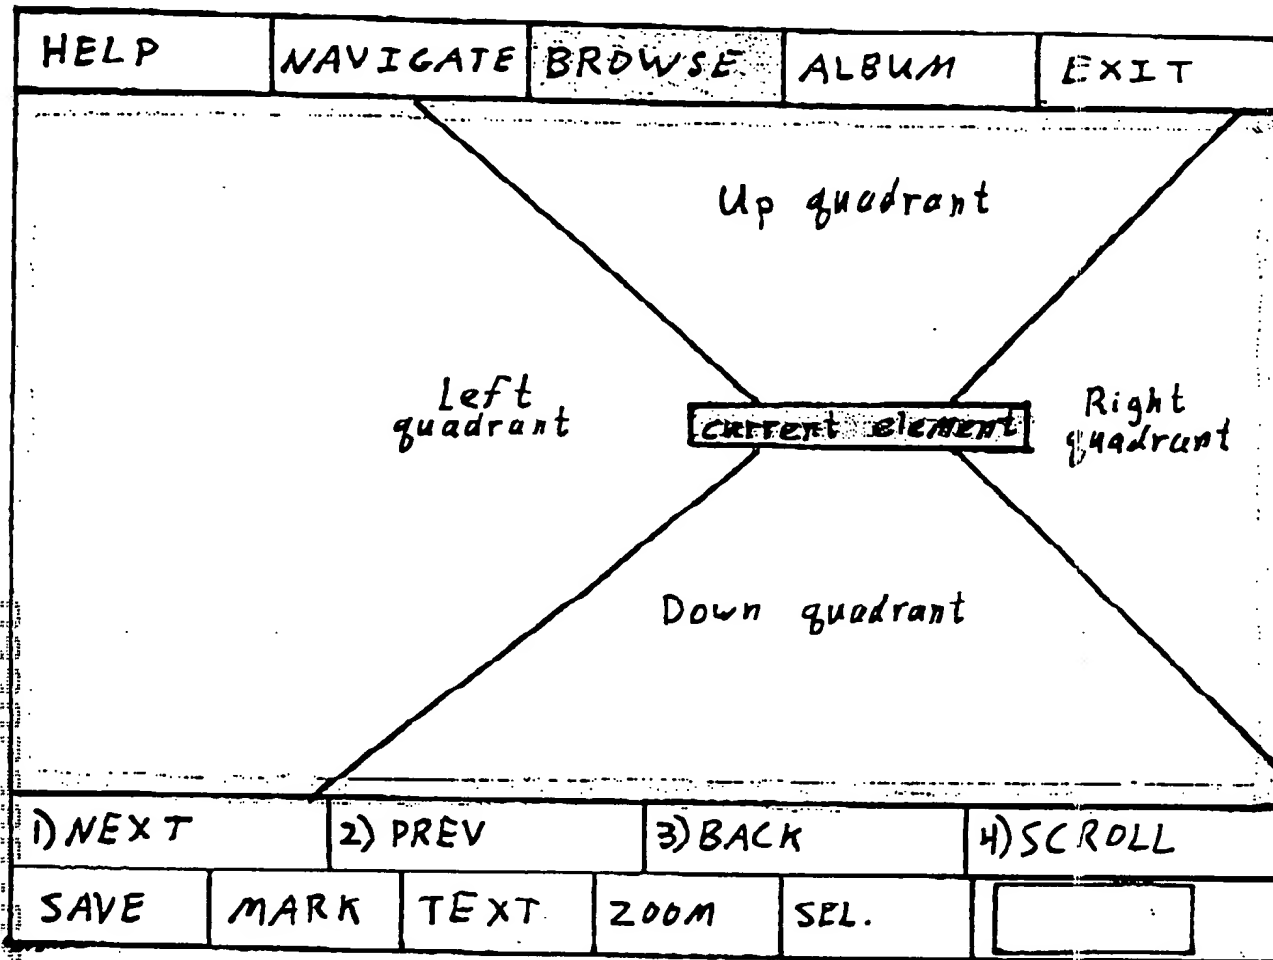 HELP NAVIGATE BROWSE ALBUM EXIT
Up quadrant
Left
quadrant
current element
Right
quadrant
Down quadrant
1) NEXT 2) PREV 3) BACK 4) SCROLL
SAVE MARK TEXT ZOOM SEL.